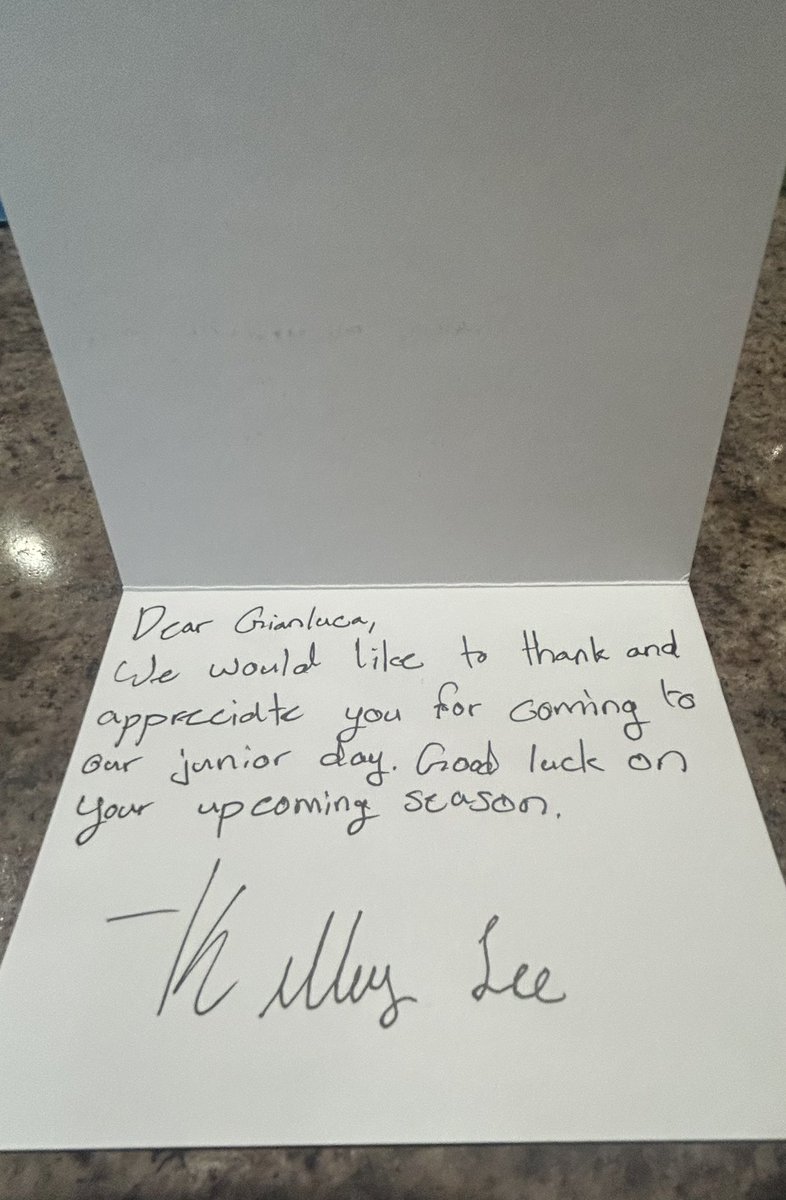 Dear Gianluca,
We would like to thank and
appreciate you for coming to
our junior day. Good luck on
your upcoming season.
- Kelley Lee